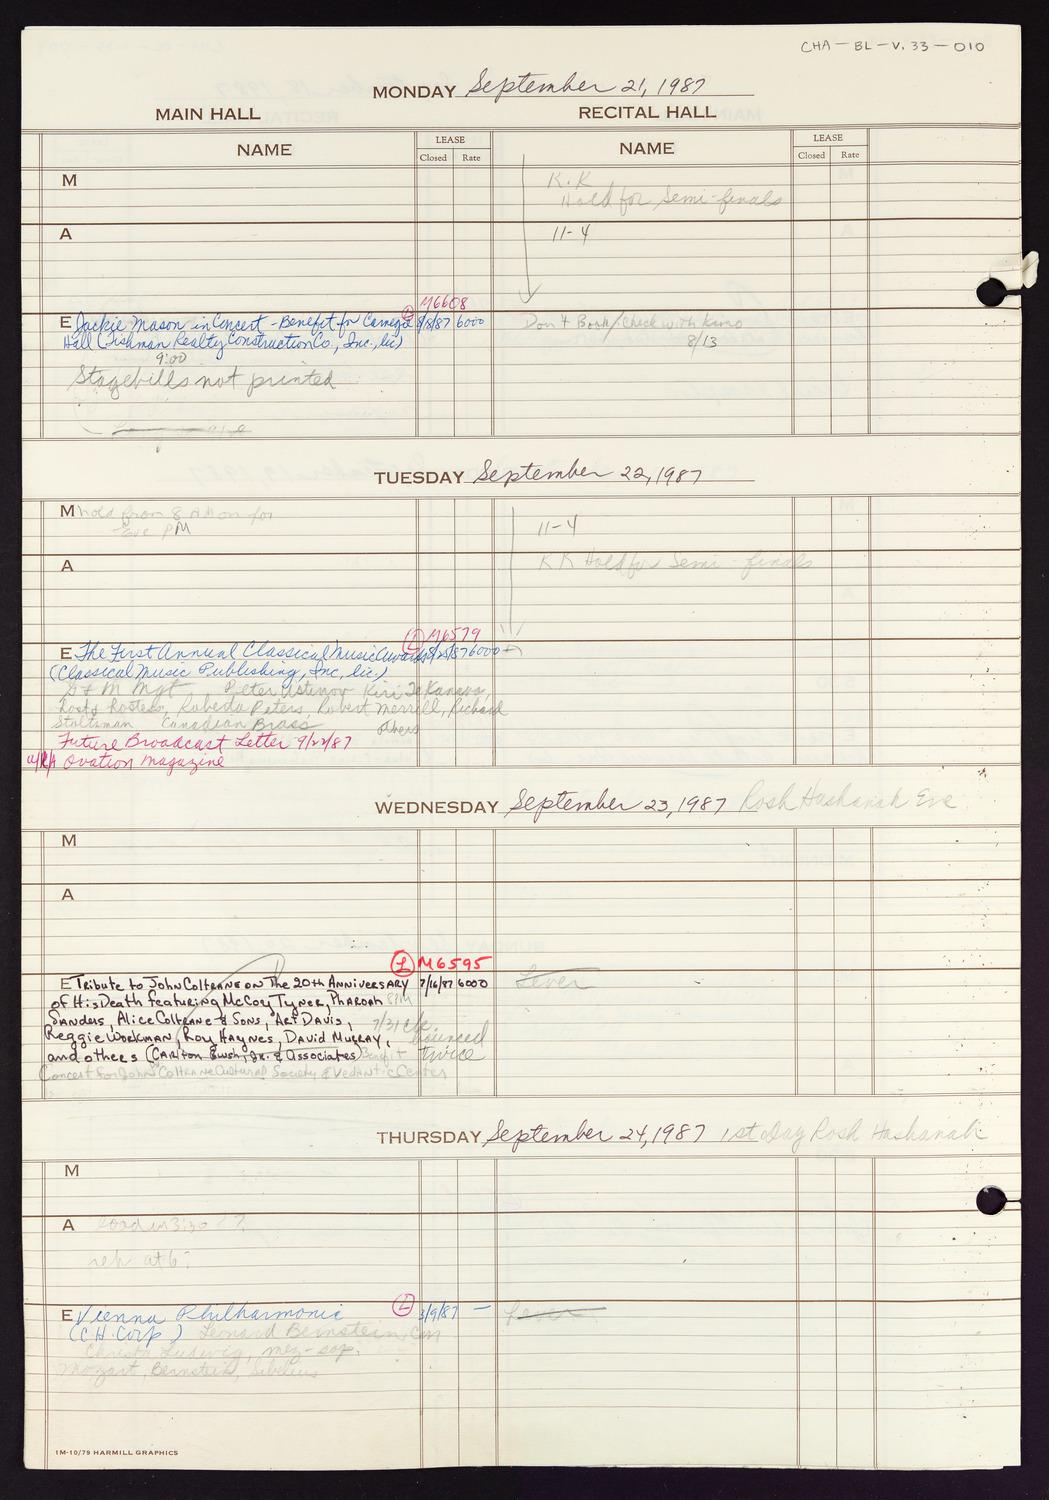 CHA-BL-V.33-010
MONDAY September 21, 1987
MAIN HALL RECITAL HALL
NAME LEASE NAME LEASE
Closed Rate Closed Rate
M K.K
Hold for Semi-finals
A 11-4
M6608
E Jackie Mason in Concert - Benefit for Carnegie L 8/18/87 6000 Don't Book/Check with Kino
Hall (Fishman Realty Construction Co., Inc., lic) 8/13
9:00
Stagebills not printed
TUESDAY September 22, 1987
M hold from 8 AM on for
eve PM 11-4
A K K Hold for Semi-finals
L M6579
E The First Annual Classical Music Awards 8/25/87 6000
(Classical Music Publishing, Inc, lic.)
Mgt Peter Ustinov Kiri Te Kanawa,
Roberta Peters, Robert Merrill, Richard
Stoltzman Canadian Brass others
Future Broadcast Letter 9/22/87
Ovation Magazine
WEDNESDAY September 23, 1987 Rosh Hashanah Eve
M
A
L M6595
E Tribute to John Coltrane on The 20th Anniversary 7/16/87 6000 Lever
of His Death featuring McCoy Tyner, Pharoah 8PM
Sanders, Alice Coltrane & Sons, Art Davis, 7/31 ck
Reggie Workman, Roy Haynes, David Murray, bounced
and others (Carlton Bush, Jr. & Associates) Benefit twice
Concert for John Coltrane Cultural Society & Vedantic Center
THURSDAY September 24, 1987 1st day Rosh Hashanah
M
A load in 3:30
reh at 6:
E Vienna Philharmonic L 3/9/87 — Lever
(C.H. Corp) Leonard Bernstein, Con
Christa Ludwig, mez-sop.
Mozart, Bernstein, Sibelius
1M-10/79 HARMILL GRAPHICS